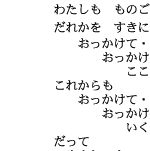 わたしも　ものご
だれかを　すきに
おっかけて・
おっかけ
ここ
これからも
おっかけて・
おっかけ
いく
だって